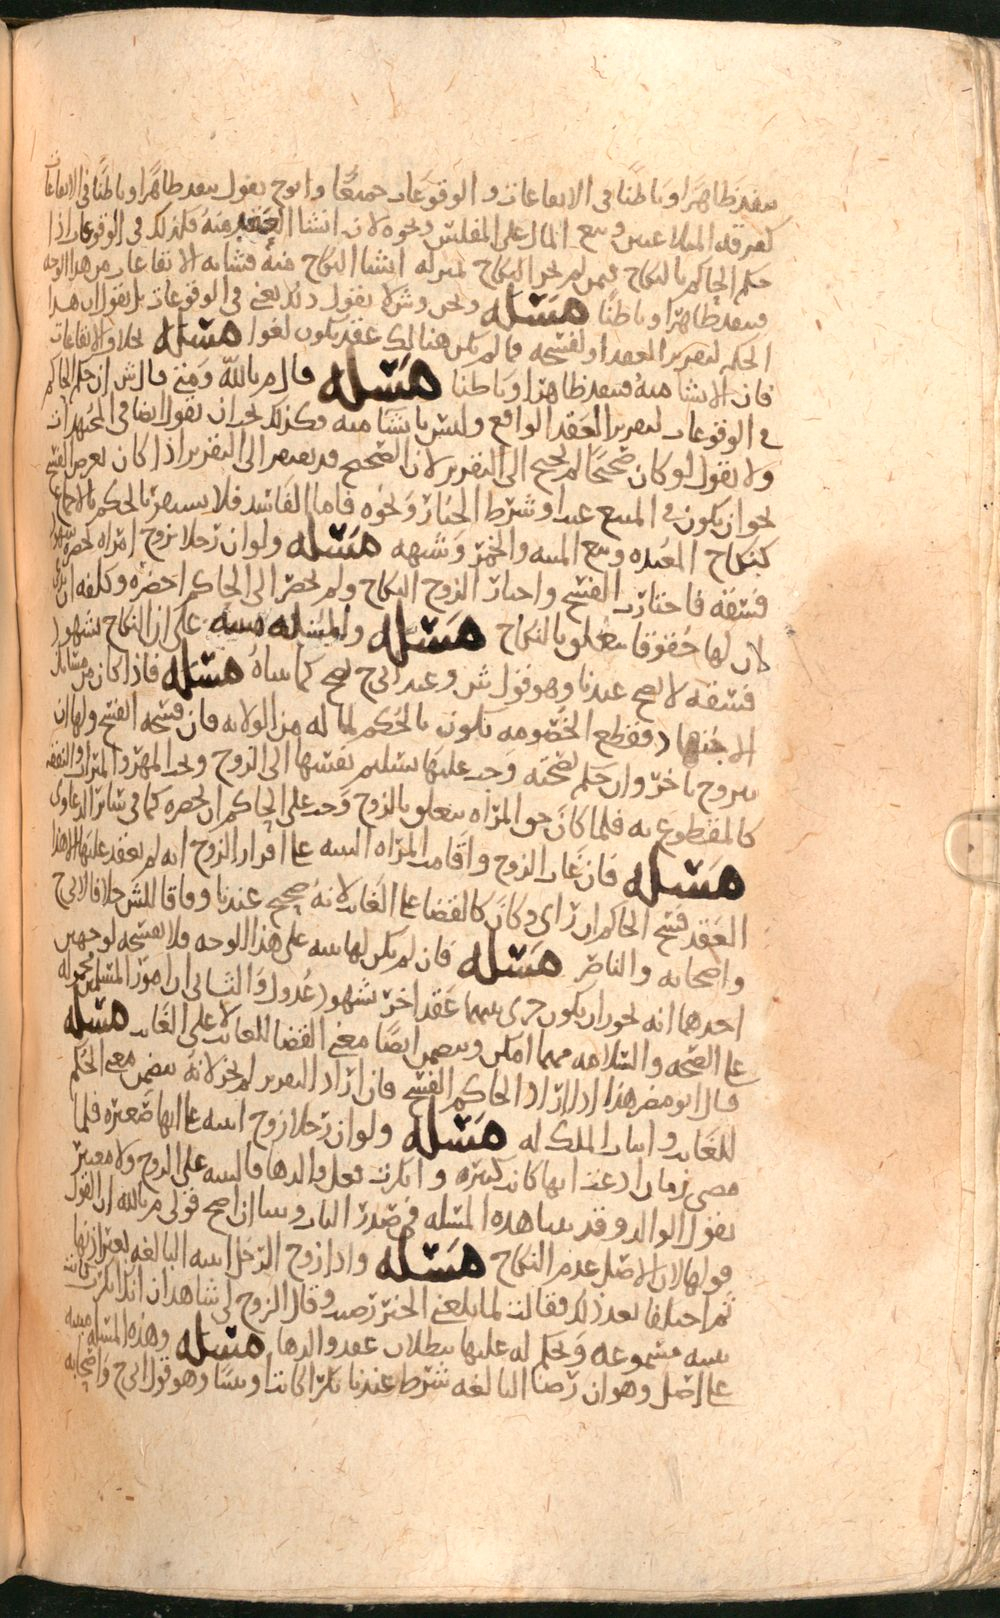 ينفذ ظاهرًا وباطنًا في الايقاعات و الوقوعات جميعًا وابوح يقول ينفد ظاهرًا وباطنًا في الايقاعات
كفرقه المتلاعنين وبيع المال على المفلس ونحوه لان انشا العقد منهُ فكذلك في الوقوعات اذا
حكم الحاكم بالنكاح فيمن لم يجز النكاح بمنزله انشا النكاح منهُ فشابه الايقاعات من هذا الوجه
فينفذ ظاهرًا وباطنًا مسئله ونحن وش لا نقول ذلك يعني في الوقوعات بل نقول ان هذا
الحكم لتقرير العقد او لفسخه فما لم يكن هنالك عقد يكون لغوا مسئله بخلاف الايقاعات
فان الانشا منهُ فينفذ ظاهرًا وباطنا مسئله قال م بالله ومتى قال ش ان حكم الحاكم
في الوقوعات لتقرير العقد الواقع وليس بانشا منه فكذلك يجب ان نقول ايضا في المجتهدات
ولا نقول لو كان صحيحًا لم يحتج الى التقرير لان الصحيح قد يفتقر الى التقرير اذا كان يعرض الفسخ
نحو ان يكون في المبيع عيب او شرط الخيار ونحوه فاما الفاسد فلا يستقر بالحكم بالاجماع
كنكاح المعتده وبيع الميته والخمر وشبهه مسئله ولو ان رجلا تزوج امراه بحضره شهود
فسقه فاختارت الفسخ واختار الزوج النكاح ولم يحضر الى الحاكم احضره وكلفه ان
لان لها حقوقا يتعلق بالنكاح مسئله والمسئله مبنيه على ان النكاح بشهود
فسقه لا يصح عندنا وهو قول ش وعند ابي ح يصح كما بيناهُ مسئله فاذا كان من مسائل
الاجتهاد فقطع الخصومه يكون بالحكم لما له من الولايه فان فسخه انفسخ ولها ان
تتزوج باخر وان حكم بصحته وجب عليها تسليم نفسها الى الزوج ويجب المهر والميراث والنفقه
كالمقطوع به فلما كان حق المراه يتعلق بالزوج وجب على الحاكم ان يحضره كما في سائر الدعاوى
مسئله فان غاب الزوج واقامت المراه البينه على اقرار الزوج انه لم يعقد عليها الا هذا
العقد فسخ الحاكم ان راى وكان كالقضا على الغائب لانهُ صحيح عندنا وفاقا للش خلافا لابي ح
واصحابه والناصر مسئله فان لم يكن لها بينه على هذا الوجه فلا يفسخه لوجهين
احدهما انه يجوز ان يكون جرى بينهما عقد اخر بشهود عدول والثاني ان امور المسلمين محموله
على الصحه والسلامه مهما امكن ويتضمن ايضًا معنى القضا للغائب لا على الغائب مسئله
قال ابو مضر هذا اذا اراد الحاكم الفسخ فان اراد التقرير لم يجز لانهُ يتضمن معنى الحكم
للغائب واثبات الملك له مسئله ولو ان رجلا زوج ابنته على انها صغيره فلما
مضى زمان ادعت انها كانت كبيره وانكرت فعل والدها فالبينه على الزوج ولا معتبر
بقول الوالد وقد بينا هذه المسئله في صدر الباب وبينا ان اصح قولي م بالله ان القول
قولها لان الاصل عدم النكاح مسئله واذا زوج الرجل ابنته البالغه بغير اذنها
ثم اختلفا بعد ذلك فقالت لما بلغني الخبر رضيت وقال الزوج لي شاهدان انك انكرت كانت
بينته مسموعه ويحكم له عليها ببطلان عقد والدها مسئله وهذه المسئله مبنيه
على اصل وهو ان رضا البالغه شرط عندنا بكرًا كانت او ثيبًا وهو قول ابي ح واصحابه